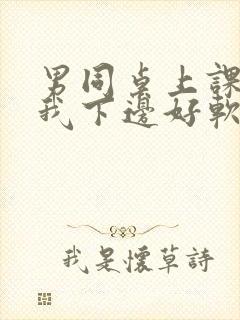 男同桌上課
我下邊好軟
我是懷草詩